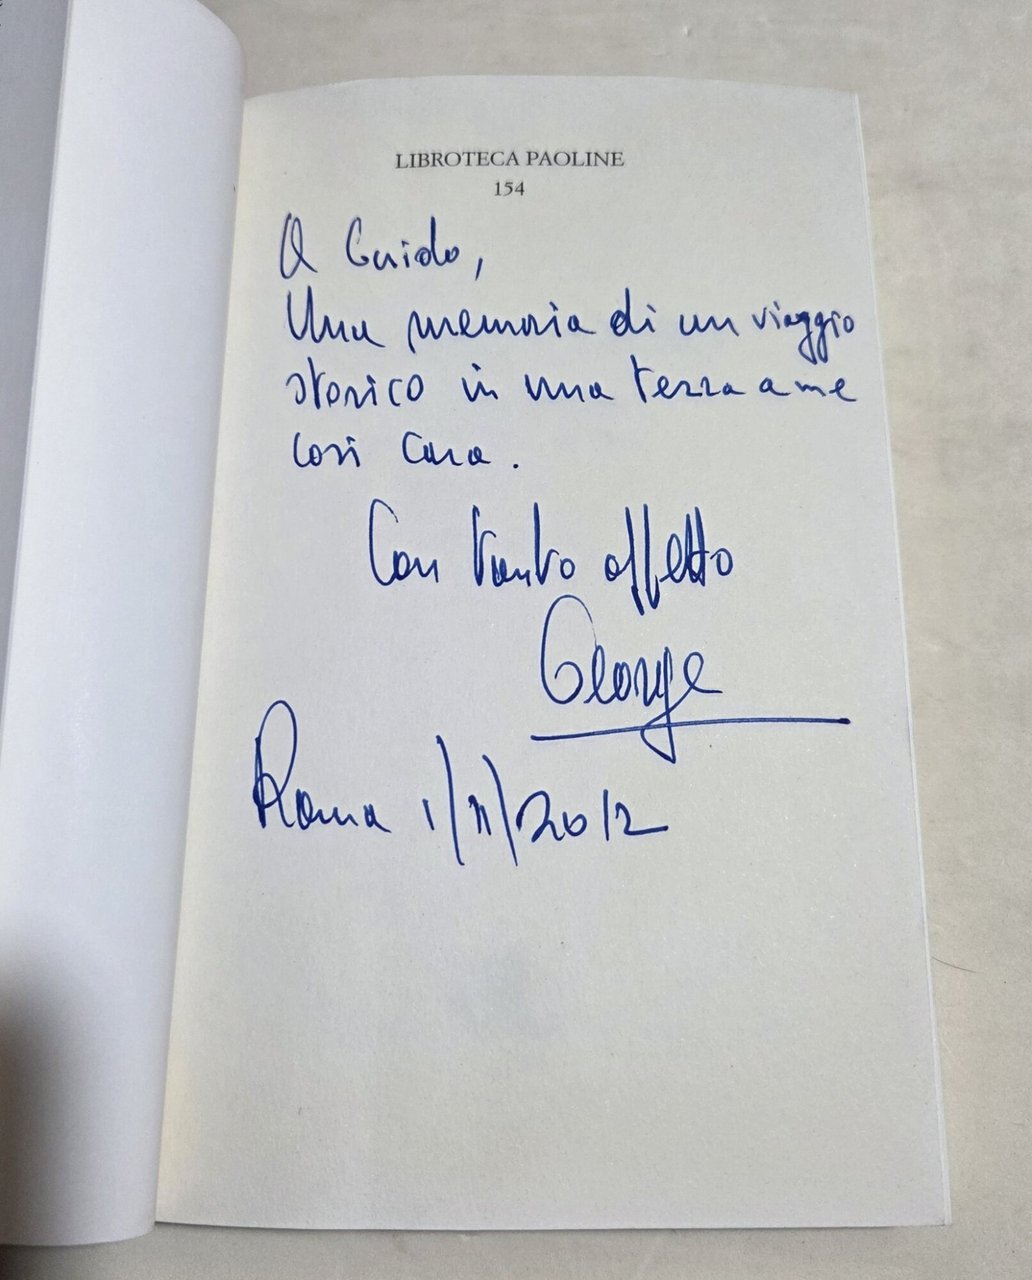 LIBROTECA PAOLINE
154
A Guido,
Una memoria di un viaggio
storico in una terra a me
così cara.
Con tanto affetto
George
Roma 1/11/2012